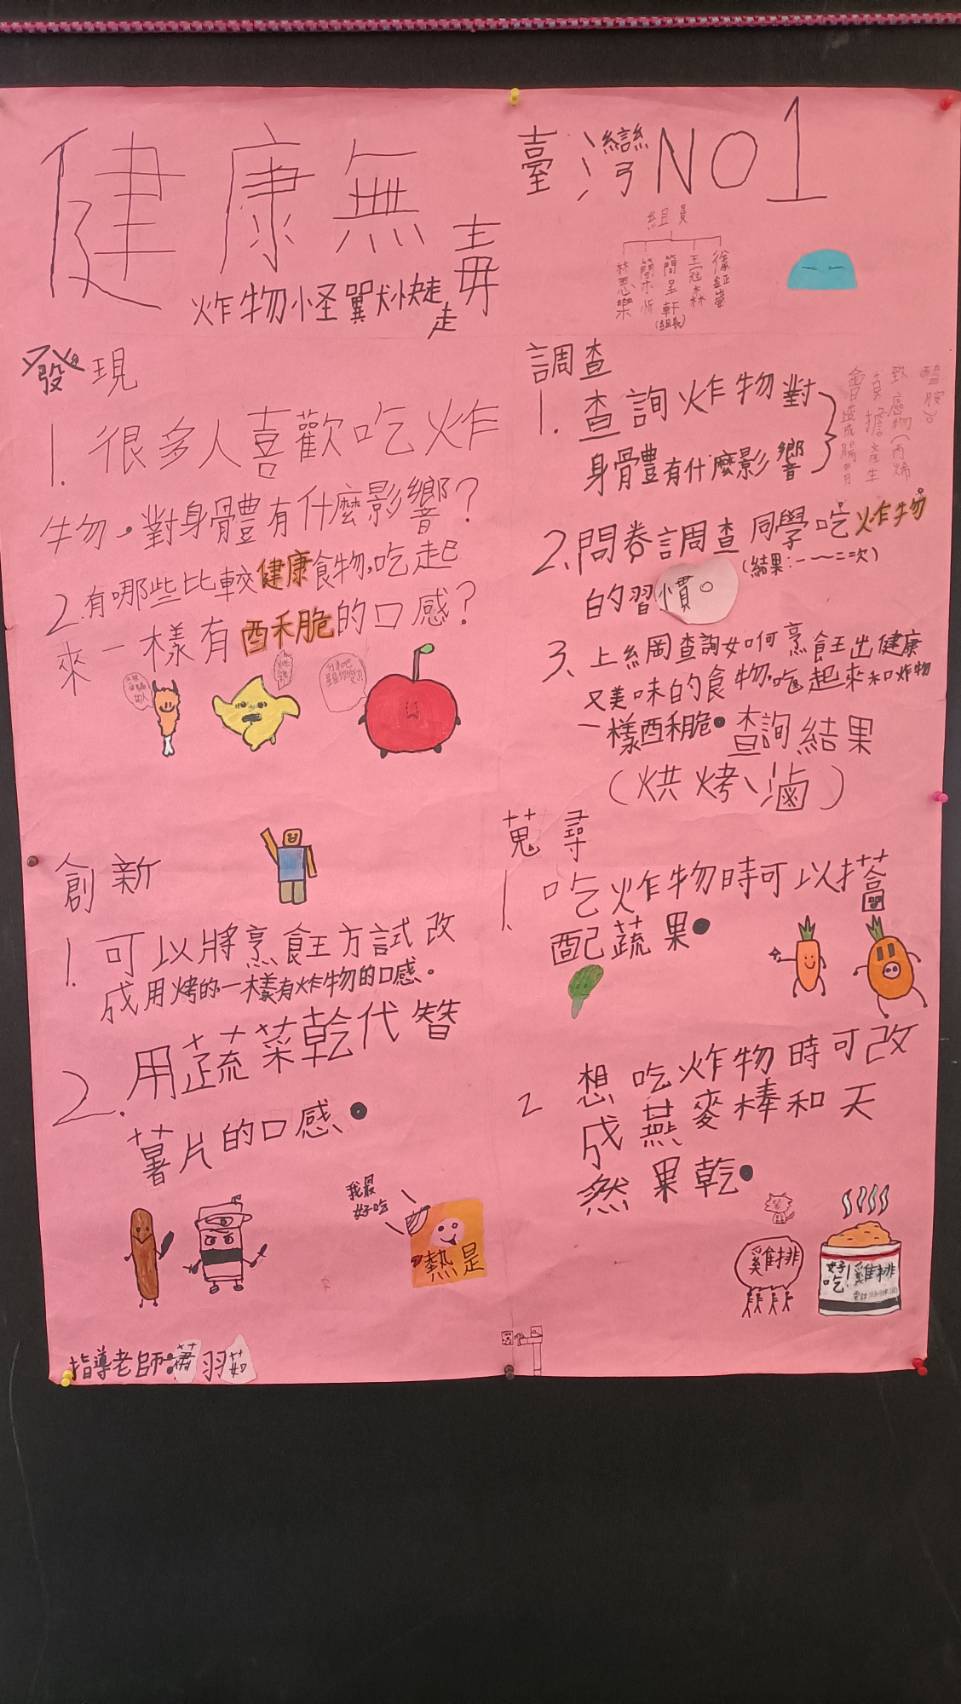 健康無毒
炸物怪獸快走
臺灣NO1
組員
王冠森
簡呈軒
(組長)
林恩樂
發現
1. 很多人喜歡吃炸
物。對身體有什麼影響?
2.有哪些比較健康食物,吃起
來一樣有酥脆的口感?
調查
1. 查詢炸物對
身體有什麼影響
會造成腸胃
負擔產生
致癌物(丙烯
醯胺)
2.問卷調查同學吃炸物
(結果:一~二次)
的習慣。
3、上網查詢如何烹飪出健康
又美味的食物,吃起來和炸物
一樣酥脆。查詢結果
(烘烤、滷)
創新
1. 可以將烹飪方試改
成用烤的一樣有炸物的口感。
2. 用蔬菜乾代替
薯片的口感。
我最
好吃
熱是
蒐尋
1. 吃炸物時可以搭
配蔬果。
2 想吃炸物時可改
成燕麥棒和天
然果乾。
雞排
好吃!雞排
指導老師:蕭羽茹